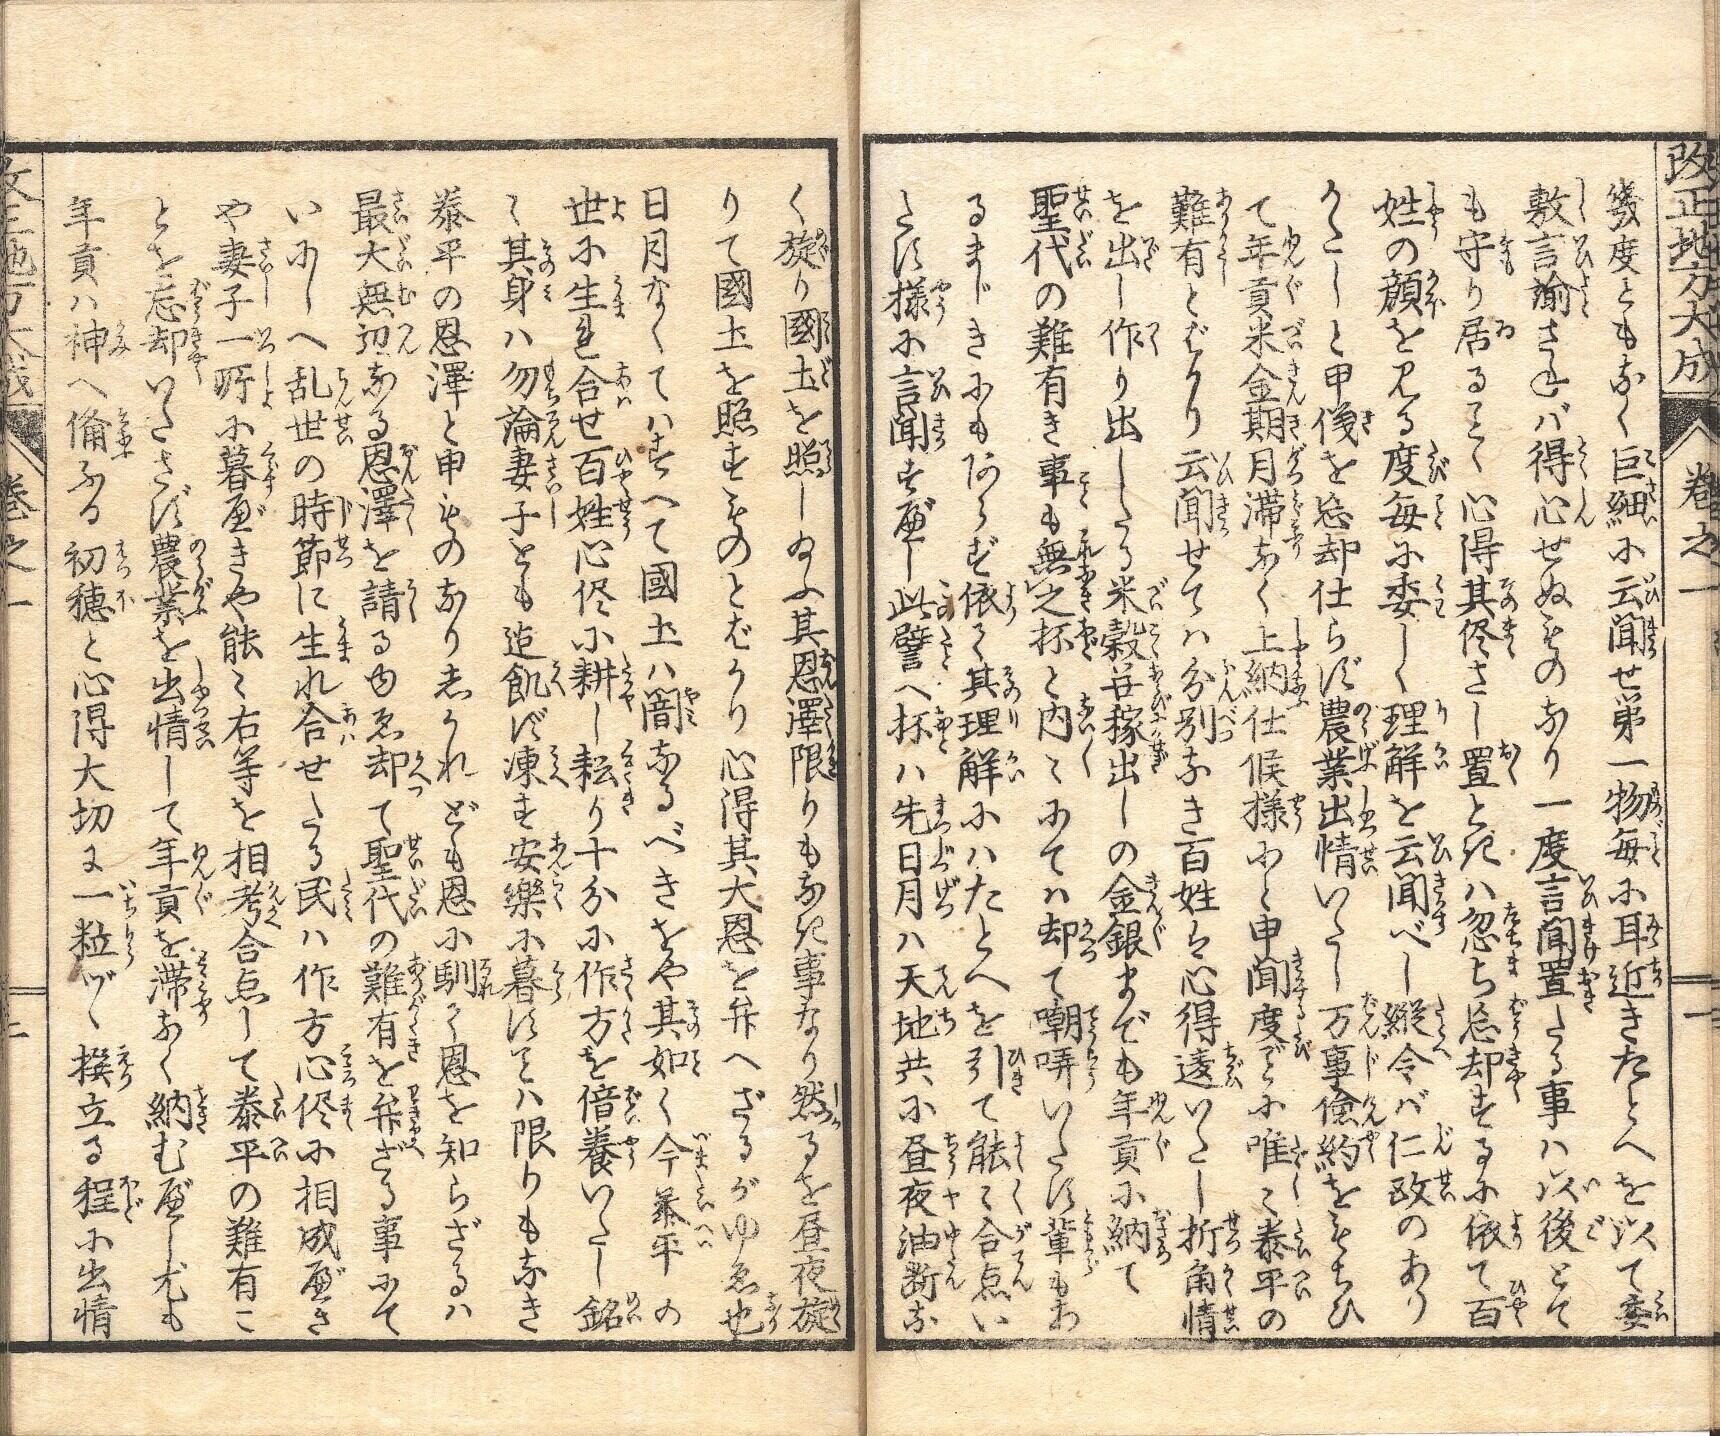 改正地方大成 巻之一 一
幾度ともなく巨細に云聞せ第一物毎に耳近きたとへを以て委
敷言諭されバ得心せぬものなり一度言聞置たる事ハ以後とて
も守り居るとく心得其侭さし置ときハ忽ち忘却するに依て百
姓の顔を見る度毎に委しく理解を云聞べし縦令バ仁政のあり
かたしと申儀を忘却仕らず農業出情いたし万事倹約をもちひ
て年貢米金期月滞なく上納仕候様にと申聞度ごとに唯々泰平の
難有とばかり云聞せてハ分別なき百姓ハ心得違いたし折角情
を出し作り出したる米穀并稼出しの金銀までも年貢に納て
聖代の難有き事も無之抔と内々にてハ却て嘲哢いたす輩もあ
るまじきにもあらず依て其理解にハたとへを引て能々合点い
たす様に言聞すべし此譬へ抔ハ先日月ハ天地共に昼夜油断な
く旋り國土を照し給ふ其恩澤限りもなき事なり然るを昼夜旋
りて國土を照すものとばかり心得其大恩を弁へざるがゆゑ也
日月なくてハすべて國土ハ闇なるべきをや其如く今泰平の
世に生れ合せ百姓心侭に耕し耘り十分に作方を倍養いたし銘
々其身ハ勿論妻子とも迄飢ず凍す安樂に暮すことハ限りもなき
泰平の恩澤と申ものなりしかれども恩に馴て恩を知らざるハ
最大無辺なる恩澤を請るゆゑ却て聖代の難有を弁ざる事にて
いにしへ乱世の時節に生れ合せたる民ハ作方心侭に相成べき
や妻子一所に暮べきや能々右等を相考合点して泰平の難有こ
とを忘却いたさず農業を出情して年貢を滞なく納むべし尤も
年貢ハ神へ備ふる初穂と心得大切に一粒づゝ撰立る程に出情
改正地方大成 巻之一 二